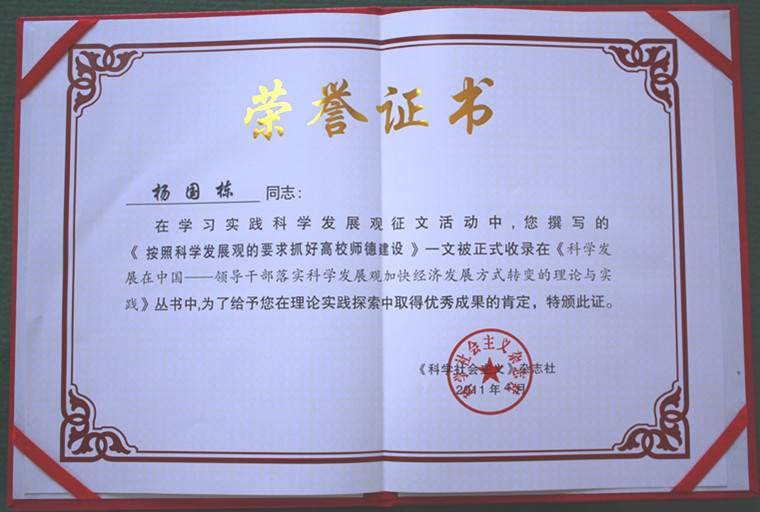 荣誉证书
杨国栋 同志：
在学习实践科学发展观征文活动中，您撰写的
《按照科学发展观的要求抓好高校师德建设》一文被正式收录在《科学发
展在中国——领导干部落实科学发展观加快经济发展方式转变的理论与实
践》丛书中，为了给予您在理论实践探索中取得优秀成果的肯定，特颁此证。
《科学社会主义》杂志社
2011年4月
科学社会主义杂志社